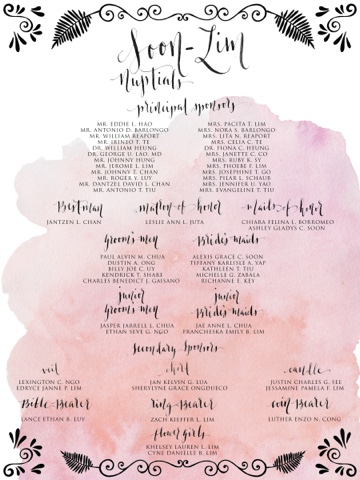 Soon-Lim
Nuptials
principal sponsors
MR. EDDIE L. HAO
MR. ANTONIO D. BARLONGO
MR. WILLIAM REAPORT
MR. IRINEO T. TE
DR. WILLIAM HEUNG
DR. GEORGE U. LAO, MD
MR. JOHNNY HUNG
MR. JEROME L. LIM
MR. JOHNNY T. CHAN
MR. ROGER Y. LUY
MR. DANTZEL DAVID L. CHAN
MR. ANTONIO T. TIU
MRS. PACITA T. LIM
MRS. NORA S. BARLONGO
MRS. LETA N. REAPORT
MRS. CELIA C. TE
DR. FIONA C. HEUNG
MRS. JANETTE C. CO
MRS. RUBY K. SY
MRS. PHOEBE F. LIM
MRS. JOSEPHINE T. GO
MRS. PILAR L. SCHAUB
MRS. JENNIFER U. YAO
MRS. EVANGELINE T. TIU
Bestman
JANTZEN L. CHAN
matron of honor
LESLIE ANN L. JUTA
maids of honor
CHIARA FELENA J. BORROMEO
ASHLEY GLADYS C. SOON
Groom's men
PAUL ALVIN M. CHUA
DUSTIN A. ONG
BILLY JOE C. UY
KENDRICK T. SHARE
CHARLES BENEDICT J. GAISANO
Bride's maids
ALEXIS GRACE C. SOON
TIFFANY KARLISLE A. YAP
KATHLEEN T. TIU
MICHELLE G. ZABALA
RICHANNE E. KEY
junior
Groom's men
JASPER JARRELL L. CHUA
ETHAN SEVE G. NGO
junior
Bride's maids
JAE ANNE L. CHUA
FRANCHESKA EMILY B. LIM
Secondary sponsors
veil
LEXINGTON C. NGO
EDRYCE JANNE P. LIM
cord
JAN KELVIN G. LUA
SHERYLYNE GRACE ONGDUECO
candle
JUSTIN CHARLES G. LEE
JESSAMINE PAMELA F. LIM
Bible Bearer
LANCE ETHAN B. LUY
Ring Bearer
ZACH KIEFFER L. LIM
coin Bearer
LUTHER ENZO N. CONG
flower girls
KHELSEY LAUREN L. LIM
CYNE DANIELLE B. LIM